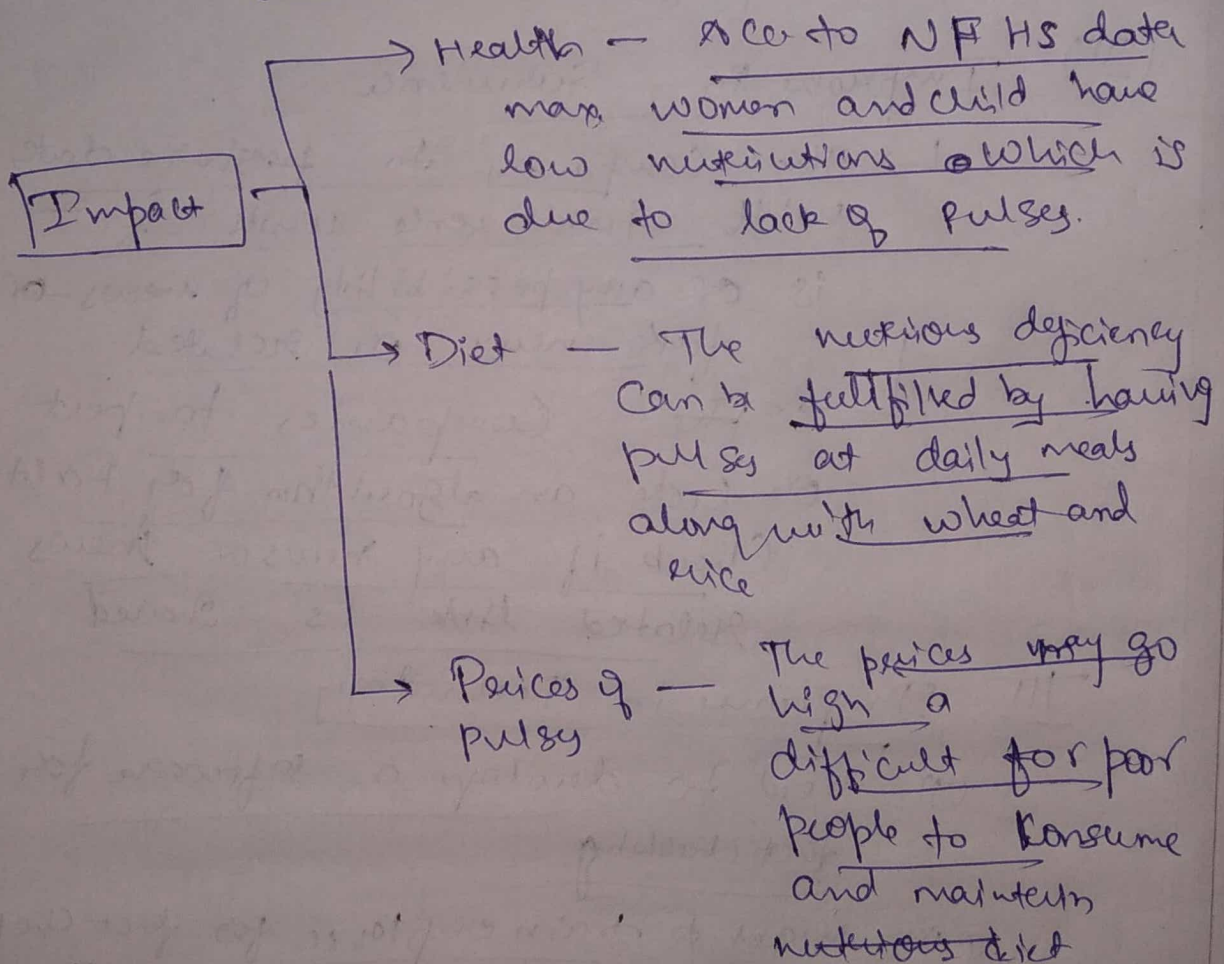 Health – Acc to NFHS data
max. women and child have
low nutriutions which is
due to lack of pulses.
Impact
Diet – The nutrious deficiency
Can be fullfilled by having
pulses at daily meals
along with wheat and
rice
Prices of pulses – The prices may go
high a
difficult for poor
people to Consume
and maintain
nutritious diet